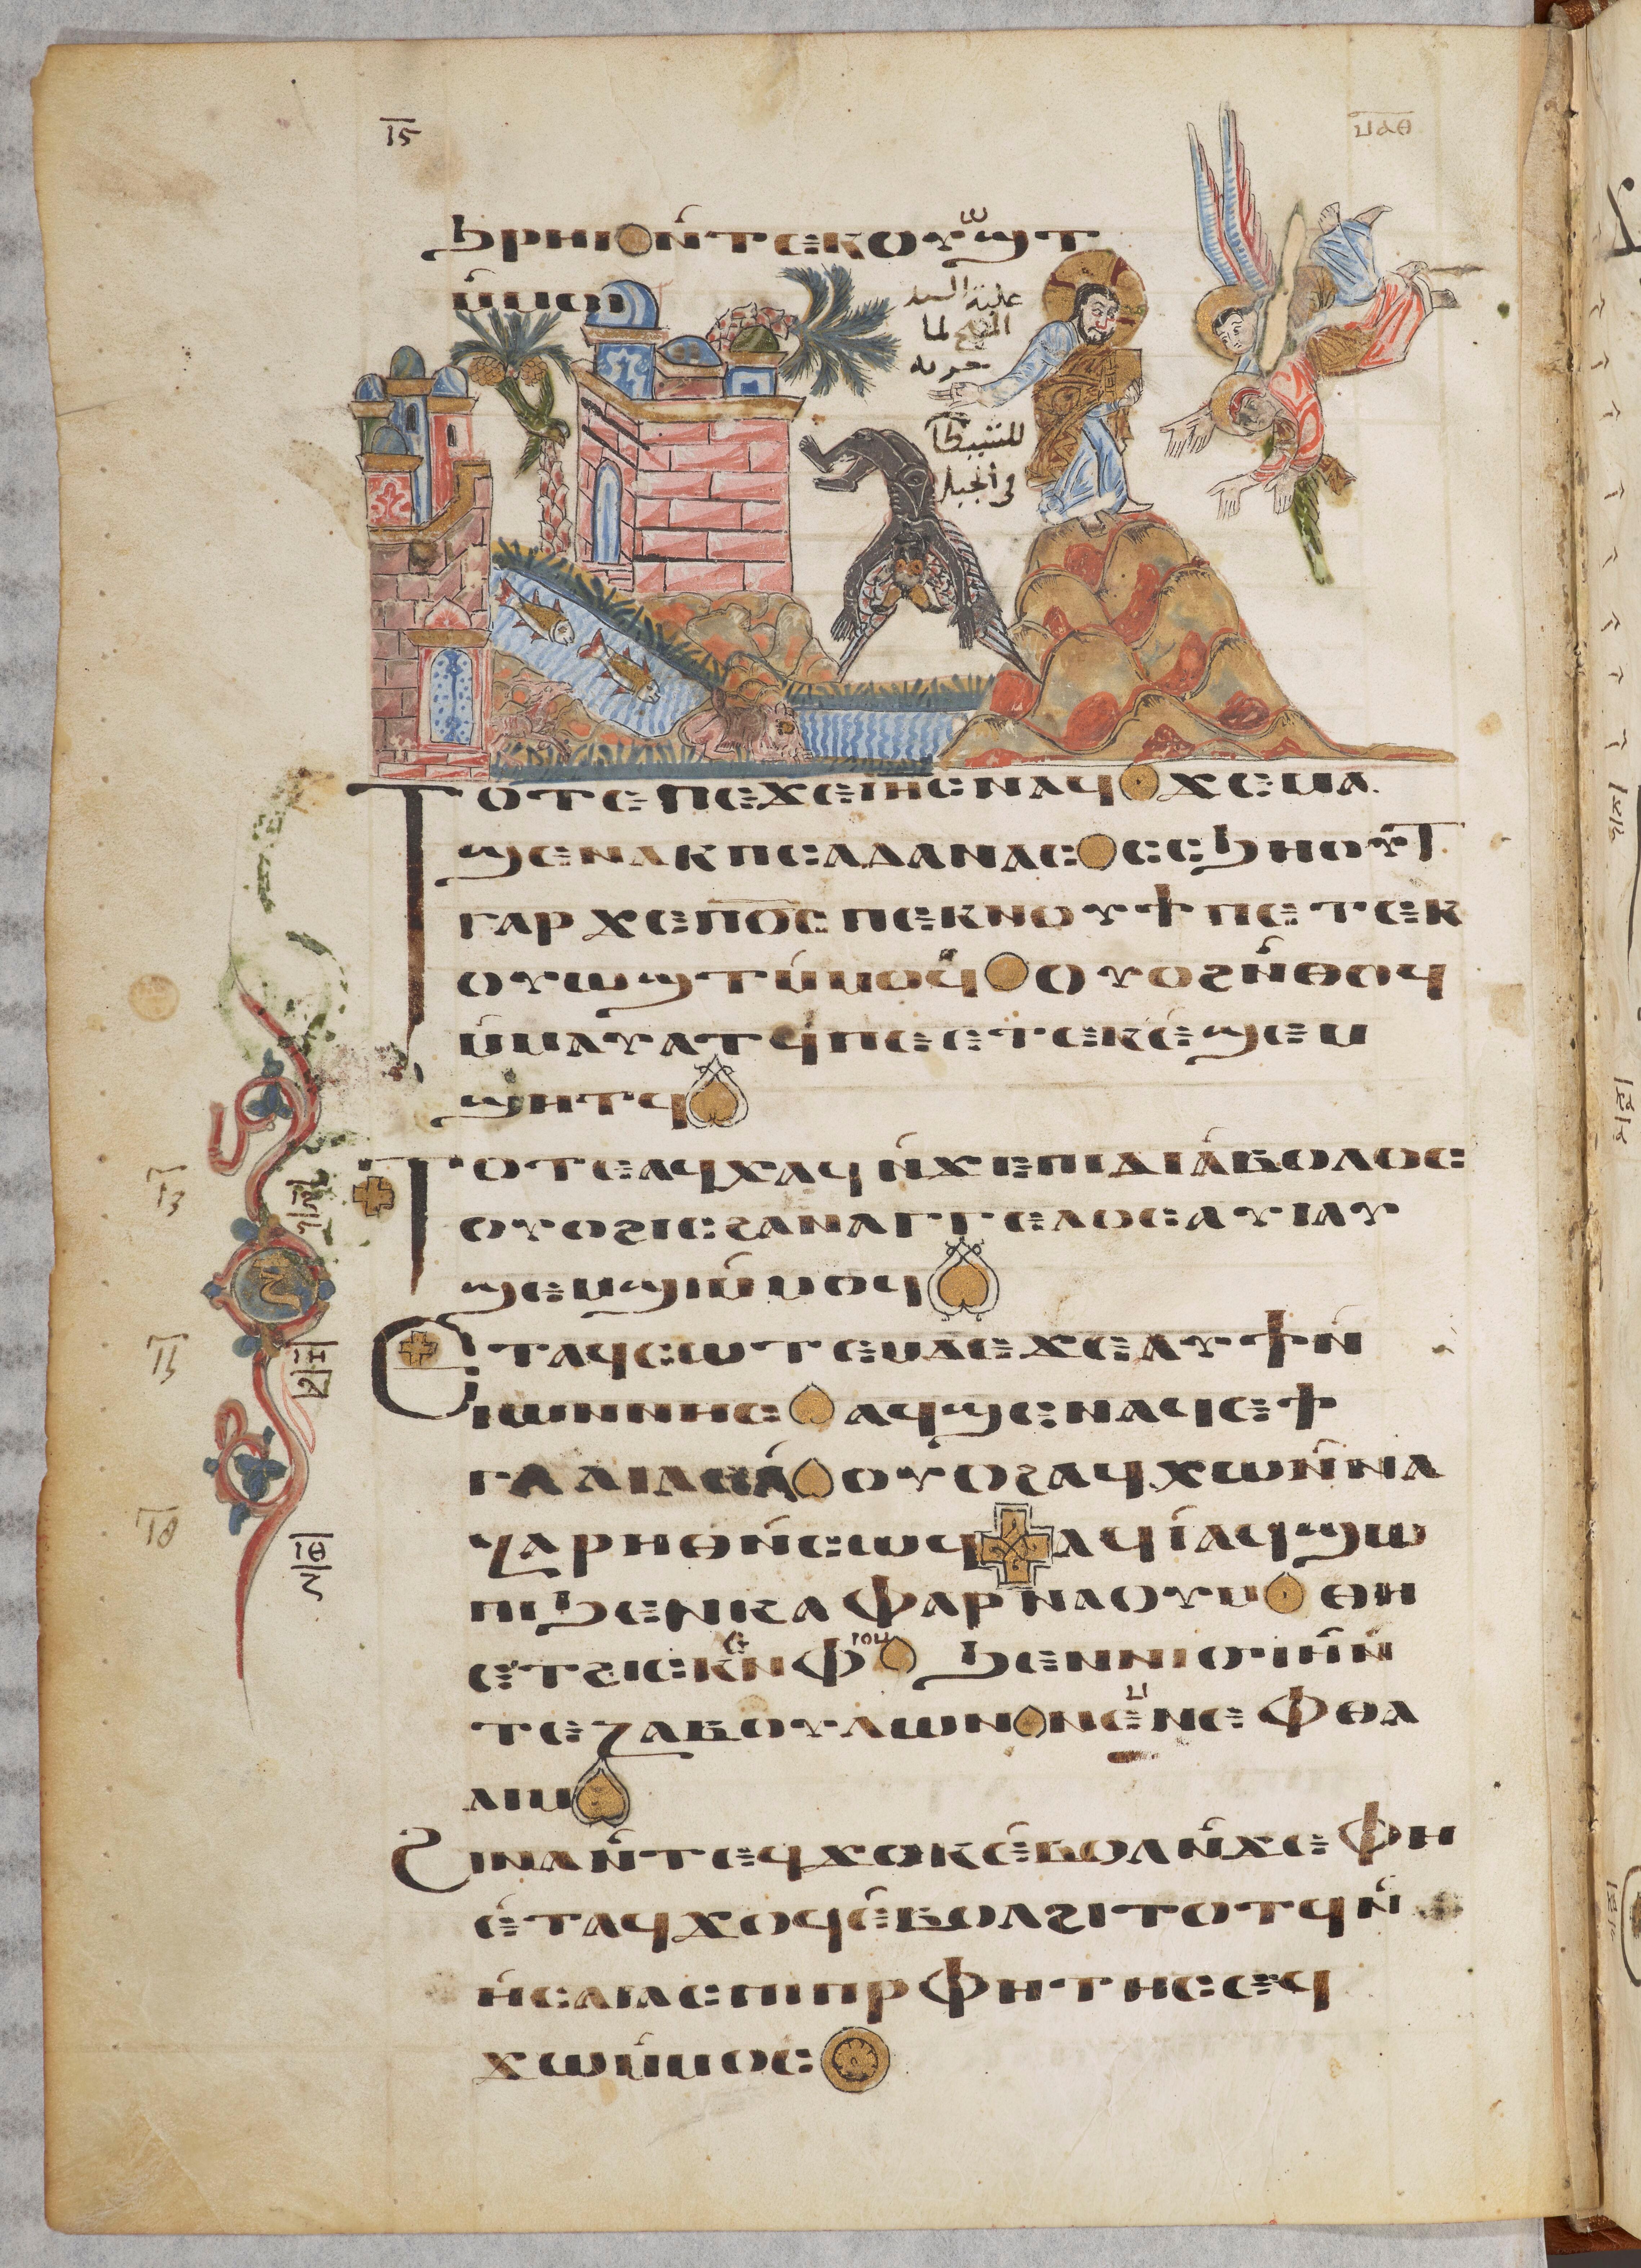 ⲓ̅ⲋ̅
ⲙⲁⲑ
ϧⲣⲏⲓ ⲛ̀ⲧⲉⲕⲟⲩⲱϣⲧ
ⲙ̀ⲙⲟⲓ
غلبة السيد
المسيح لما
جربه
للشيطان
في الجبل
Ⲧⲟⲧⲉ ⲡⲉϫⲉ ⲓⲏⲥ ⲛⲁϥ ϫⲉ ⲙⲁ
ϣⲉⲛⲁⲕ ⲡⲥⲁⲇⲁⲛⲁⲥ ⲥⲥϧⲏⲟⲩⲧ
ⲅⲁⲣ ϫⲉ ⲡⲟ̅ⲥ̅ ⲡⲉⲕⲛⲟⲩϯ ⲡⲉⲧⲉⲕ
ⲟⲩⲱϣⲧ ⲙ̀ⲙⲟϥ ⲟⲩⲟϩ ⲛ̀ⲑⲟϥ
ⲙ̀ⲙⲁⲩⲁⲧϥ ⲡⲉ ⲉⲧⲉⲕⲉ̀ϣⲉⲙ
ϣⲏⲧϥ
Ⲧⲟⲧⲉ ⲁϥⲭⲁϥ ⲛ̀ϫⲉ ⲡⲓⲇⲓⲁ̀ⲃⲟⲗⲟⲥ
ⲟⲩⲟϩ ⲓⲥ ϩⲁⲛⲁⲅⲅⲉⲗⲟⲥ ⲁⲩⲓ ⲁⲩ
ϣⲉⲙϣⲓ ⲙ̀ⲙⲟϥ
Ⲉⲧⲁϥⲥⲱⲧⲉⲙ ⲇⲉ ϫⲉ ⲁⲩϯ ⲛ̀
ⲓⲱⲁⲛⲛⲏⲥ ⲁϥϣⲉⲛⲁϥ ⲉϯ
ⲅⲁⲗⲓⲗⲉⲁ̀ ⲟⲩⲟϩ ⲁϥⲭⲱ ⲛ̀ⲛⲁ
ⲍⲁⲣⲏⲑ ⲛ̀ⲥⲱϥ ⲁϥⲓ̀ ⲁϥϣⲱ
ⲡⲓ ϧⲉⲛ ⲕⲁⲫⲁⲣⲛⲁⲟⲩⲙ ⲑⲏ
ⲉⲧϩⲓⲥⲕⲉⲛ ⲫⲓⲟⲙ ϧⲉⲛ ⲛⲓϭⲓⲏ ⲛ̀
ⲧⲉ ⲍⲁⲃⲟⲩⲗⲱⲛ ⲛⲉⲙ ⲛⲉⲫⲑⲁ
ⲗⲓⲙ
Ϩⲓⲛⲁ ⲛ̀ⲧⲉϥϫⲱⲕ ⲉ̀ⲃⲟⲗ ⲛ̀ϫⲉ ⲫⲏ
ⲉ̀ⲧⲁϥϫⲟϥ ⲉ̀ⲃⲟⲗ ϩⲓⲧⲟⲧϥ ⲛ̀
ⲏ̀ⲥⲁⲓⲁⲥ ⲡⲓⲡⲣⲫⲏⲧⲏⲥ ⲉϥ
ϫⲱ ⲙ̀ⲙⲟⲥ